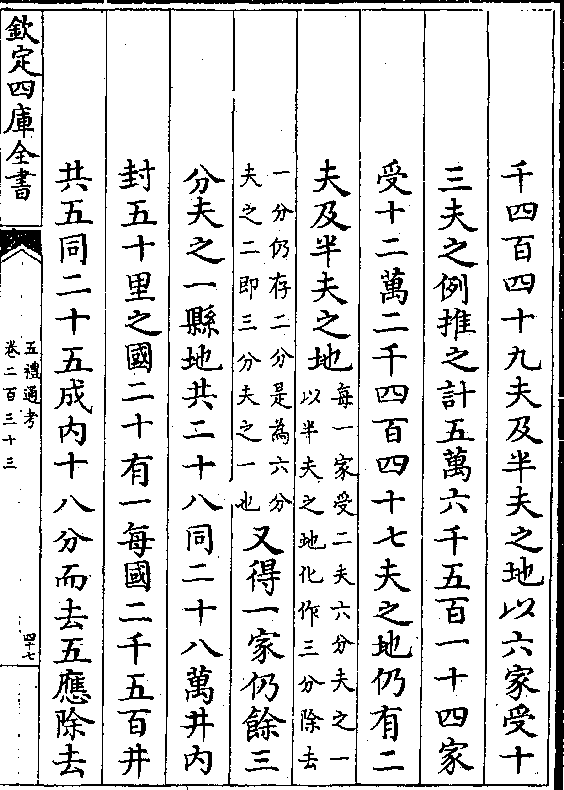 千四百四十九夫及半夫之地以六家受十
三夫之例推之計五萬六千五百一十四家
受十二萬二千四百四十七夫之地仍有二
夫及半夫之地每一家受二夫六分夫之一
以半夫之地化作三分除去
一分仍存二分是為六分
夫之二即三分夫之一也又得一家仍餘三
分夫之一縣地共二十八同二十八萬井內
封五十里之國二十有一每國二千五百井
共五同二十五成內十八分而去五應除去
欽定四庫全書
五禮通考
卷二百三十三
四十七